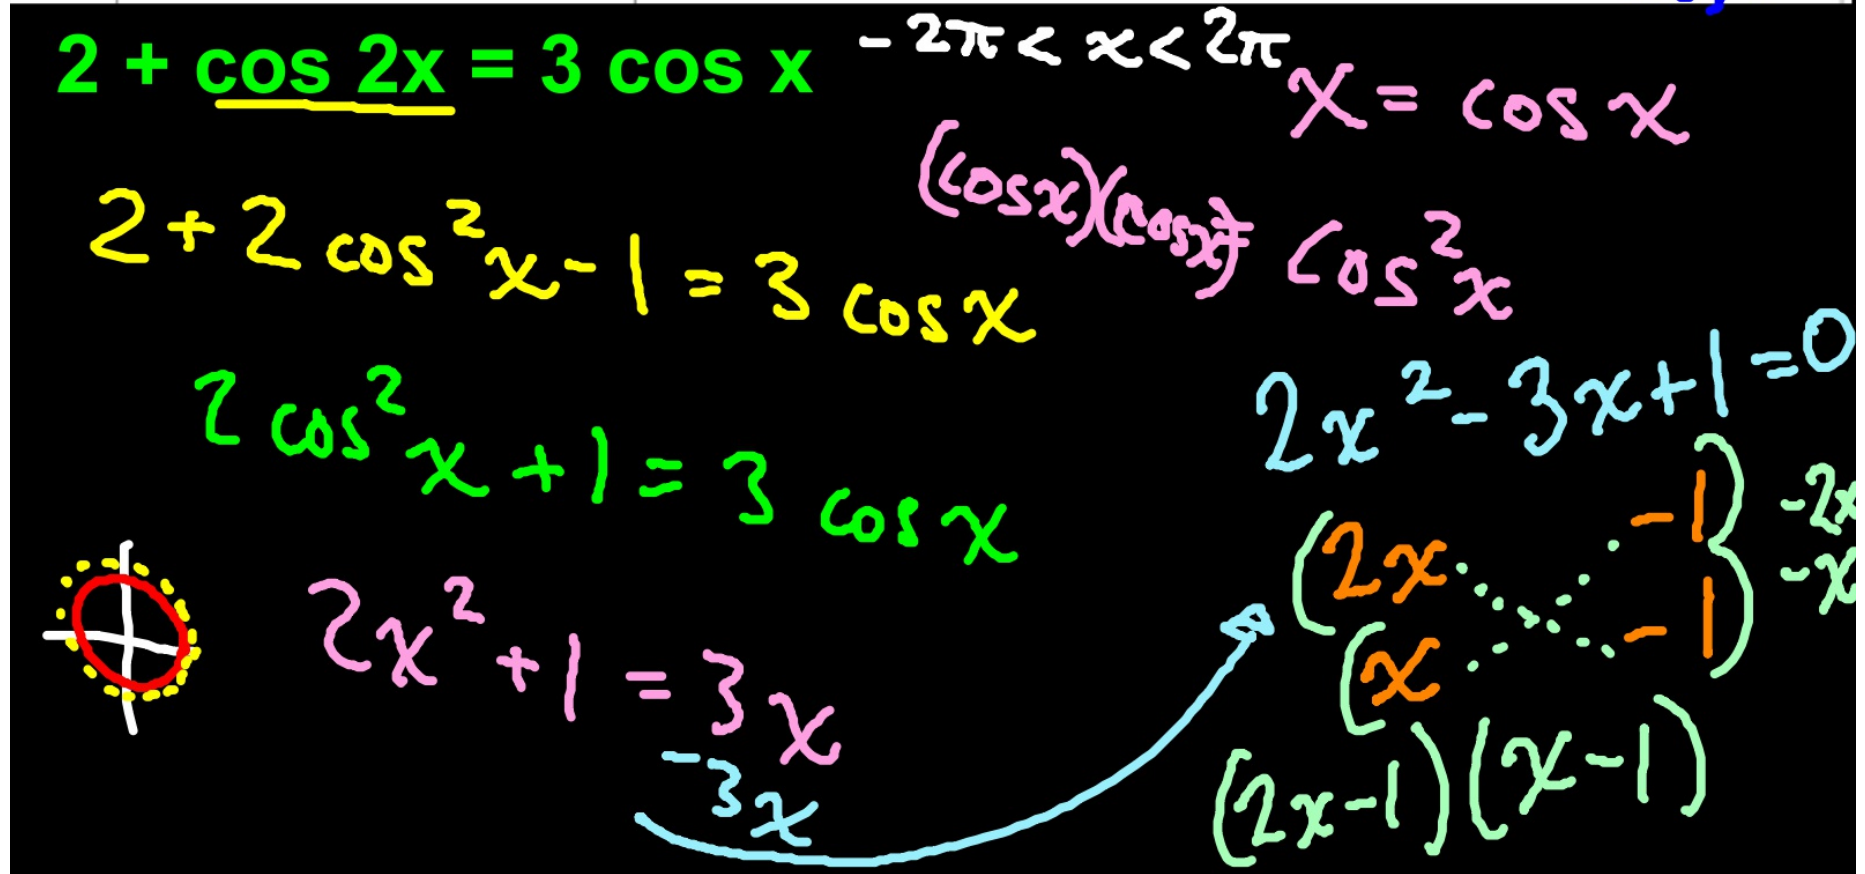 2 + cos 2x = 3 cos x
-2π < x < 2π
x = cos x
(cosx)(cosx) = cos²x
2 + 2 cos²x - 1 = 3 cos x
2 cos²x + 1 = 3 cos x
2x² + 1 = 3x
-3x
2x² - 3x + 1 = 0
(2x -1) -2x
(x -1) -x
(2x-1)(x-1)